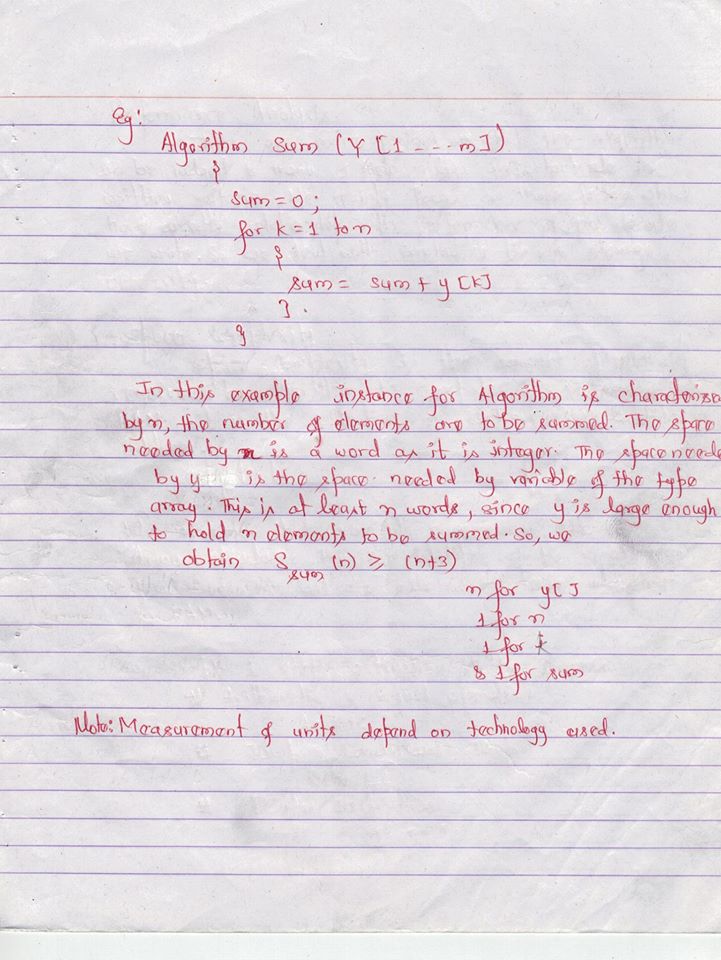 Eg:
Algorithm sum (Y [1 --- n])
{
sum = 0 ;
for k = 1 to n
{
sum = sum + y [k]
} .
}
In this example instance for Algorithm is characteris
by n, the number of elements are to be summed. The space
needed by n is a word as it is integer. The space neede
by y is the space needed by variable of the type
array. This is at least n words, since y is large enough
to hold n elements to be summed. So, we
obtain S sum (n) ≥ (n+3)
n for y[ ]
1 for n
1 for k
& 1 for sum
Note: Measurement of units depend on technology used.